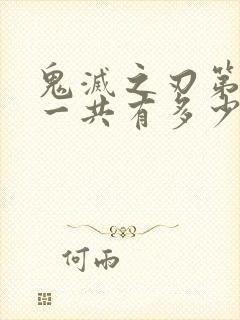 鬼滅之刃第
一共有多少
何雨